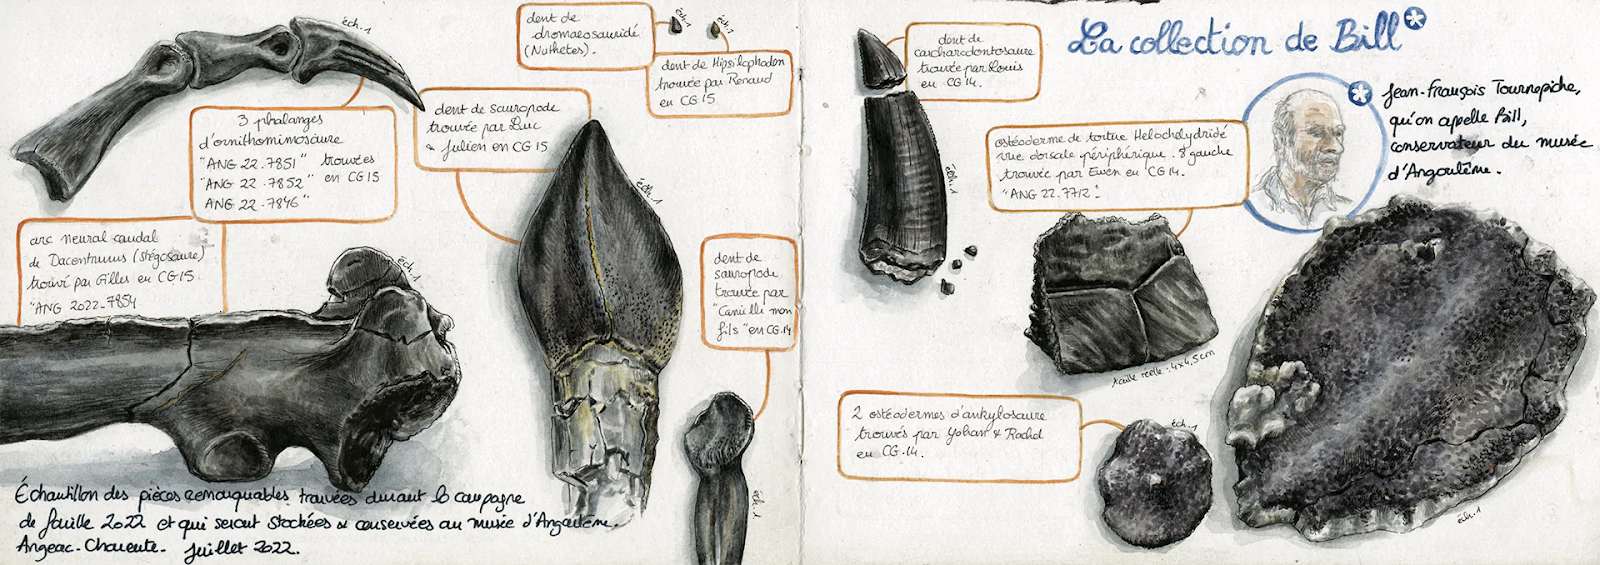 éch.1
3 phalanges
d'ornithomimosaure
"ANG 22.7851" trouvées
"ANG 22.7852" en CG 15
ANG 22.7846"
arc neural caudal
de Dacentrurus (stégosaure)
trouvé par Gilles en CG15.
"ANG 2022_7854
éch.1
dent de sauropode
trouvée par Luc
& Julien en CG 15
éch.1
dent de
dromaeosauridé
(Nuthetes).
éch.1
éch.1
dent de Hipsilophodon
trouvée par Renaud
en CG 15
dent de
sauropode
trouvée par
"Camille mon
fils" en CG.14
éch.1
Échantillon des pièces remarquables trouvées durant la campagne
de fouille 2022 et qui seront stockées & conservées au musée d'Angoulême.
Angeac-Charente. Juillet 2022.
La collection de Bill*
dent de
carcharodontosaure
trouvée par Louis
en CG 14.
éch.1
* Jean-François Tournepiche,
qu'on appelle Bill,
conservateur du musée
d'Angoulême.
ostéoderme de tortue Helochelydridé
vue dorsale périphérique. 8e gauche
trouvée par Ewen en CG 14.
"ANG 22.7712"
taille réelle : 4x4,5cm
2 ostéodermes d'ankylosaure
trouvés par Yohan & Rachel
en CG.14.
éch.1
éch.1